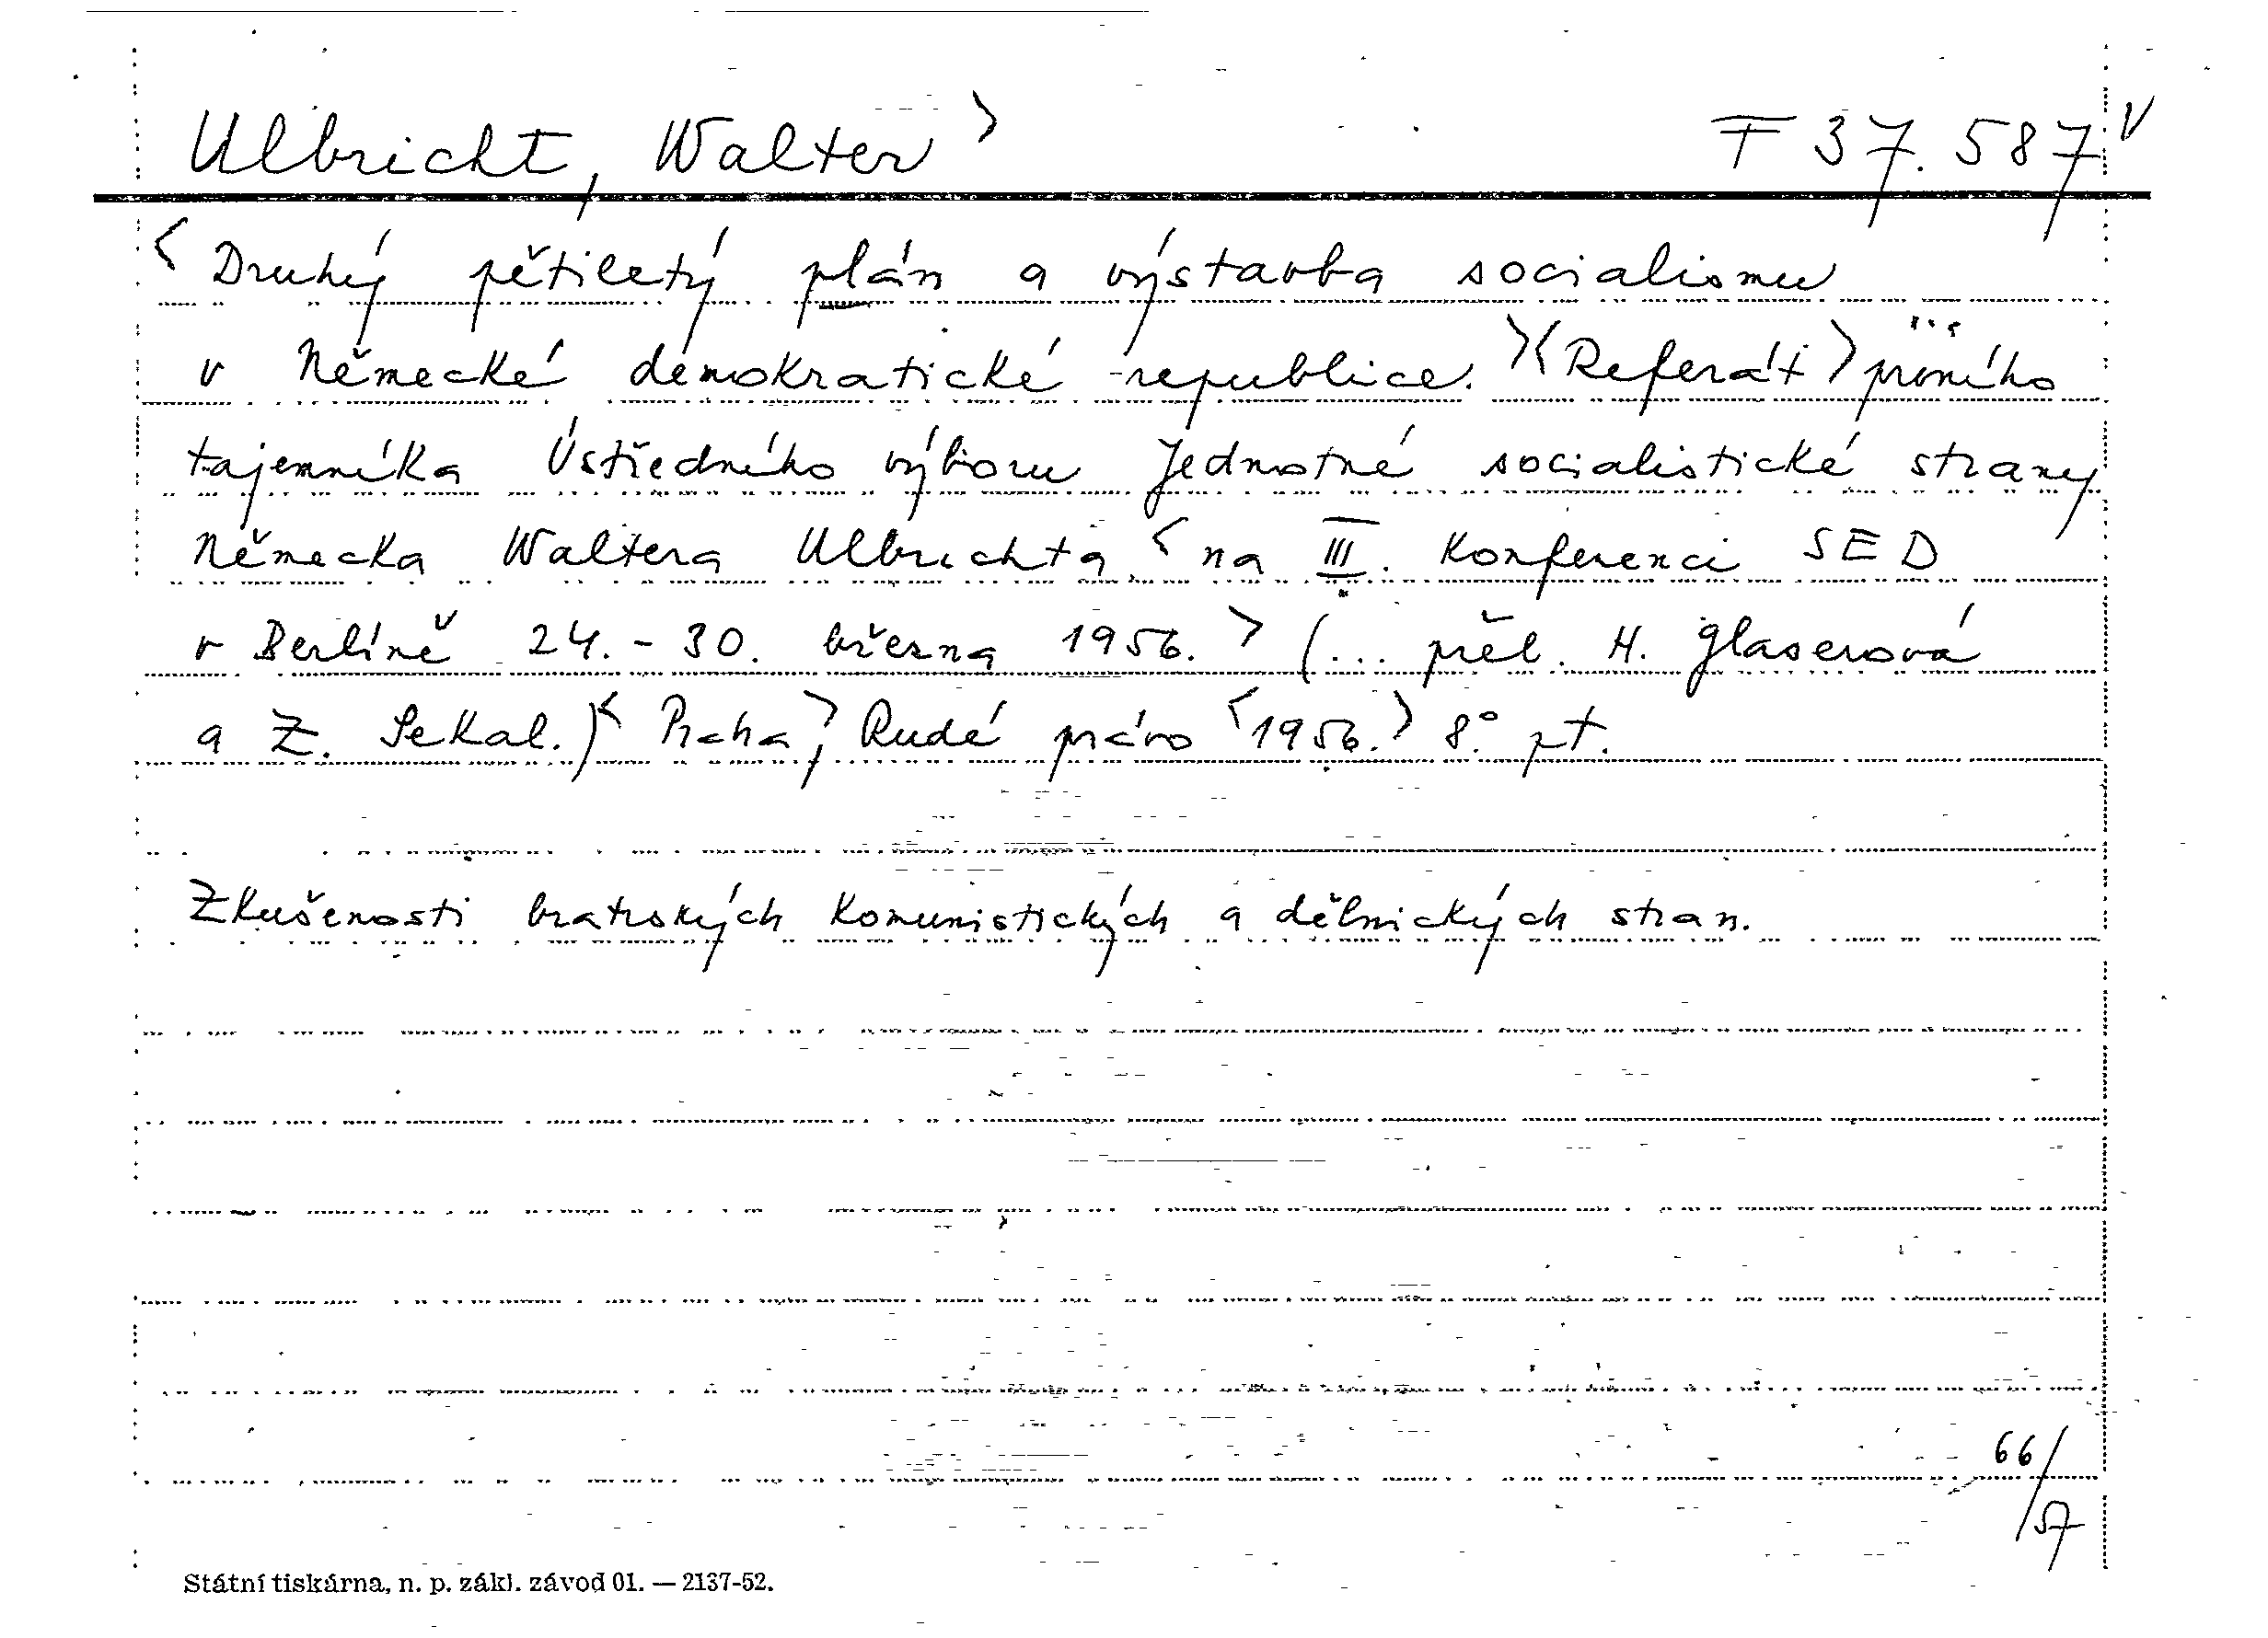 Ulbricht, Walter > F 37.587 V
< Druhý pětiletý plán a výstavba socialismu
v Německé demokratické republice. >< Referát > prvního
tajemníka Ústředního výboru Jednotné socialistické strany
Německa Waltera Ulbrichta < na III. Konferenci SED
v Berlíně 24. - 30. března 1956. > (... přel. H. Glaserová
a Z. Sekal.) < Praha, > Rudé právo < 1956. > 8°. pt.
Zkušenosti bratrských komunistických a dělnických stran.
66/57
Státní tiskárna, n. p. zákl. závod 01. — 2137-52.